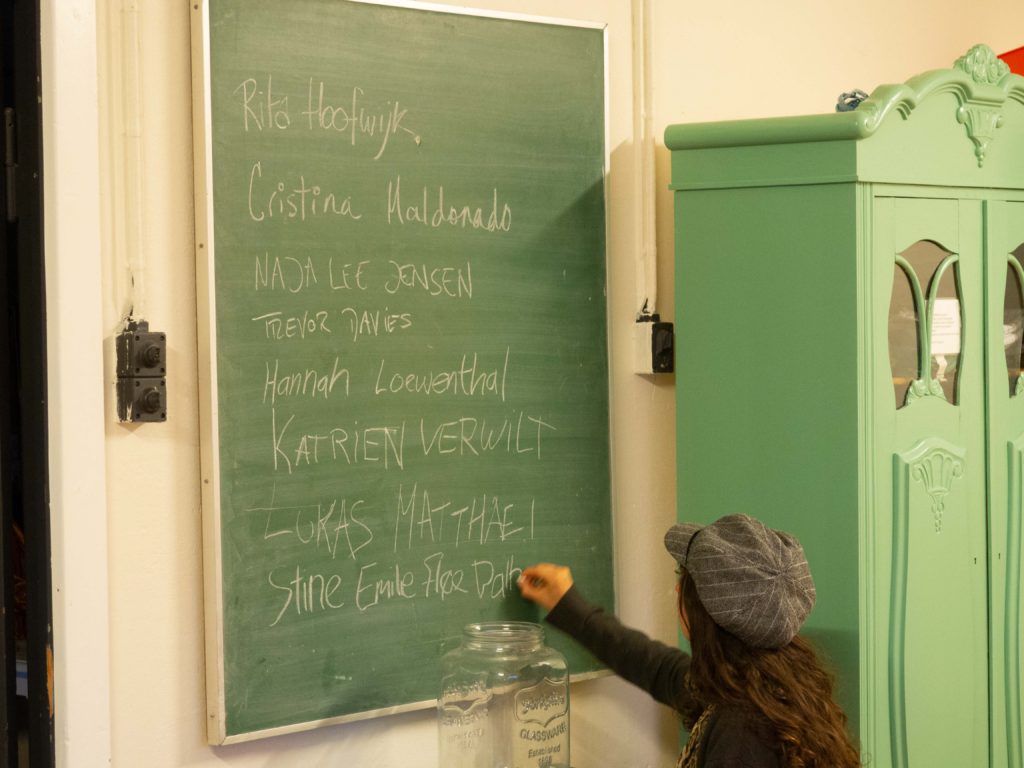 Rita Hoofwijk
Cristina Maldonado
NAJA LEE JENSEN
TREVOR DAVIES
Hannah Loewenthal
KATRIEN VERWILT
LUKAS MATTHAEI
Stine Emilie
GLASSWARE
Established